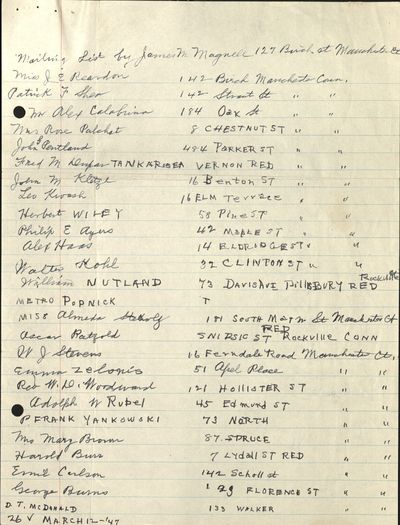 Mailing List by James M Magnell 127 Birch st Manchester Ct
Miss J E Reardon 142 Birch Manchester Conn,
Patrick F Shea 142 Strant St " "
Mr Alex Calabrino 184 Oax St " "
Mrs Rose Palchet 8 CHESTNUT ST " "
John S Pentland 484 PARKER ST " "
Fred M TANKAROSEN VERNON RED " "
John M Klotze 16 Benton ST " "
Leo Kwash 16 ELM Terrace " "
Herbert WILEY 58 Pine ST " "
Philip E Ayers 42 MAPLE ST " "
Alex Haas 14 ELDRIDGE ST " "
Walter Kohl 32 CLINTON ST " "
William NUTLAND 73 Davis Ave PillsBURY RED Rockville
METRO POPNICK T
MISS Almeda 181 SOUTH Main St Manchester Ct
Oscar Patzold SNIPSIC ST RED Rockville CONN
W J Stevens 16 Ferndale Road Manchester Ct,
Emma Zelonis 51 Apel Place " "
Rev W. D. Woodward 121 Hollister ST " "
Adolph W Rubel 45 Edmund ST " "
P FRANK YANKOWSKI 73 NORTH " "
Mrs Mary Brown 87 SPRUCE " "
Harold Burr 7 Lydall ST RED " "
Emil Carlson 142 School st " "
George Burns 29 FLORENCE ST " "
D. T. McDONALD 133 WALKER " "
26 V MARCH 12-'47